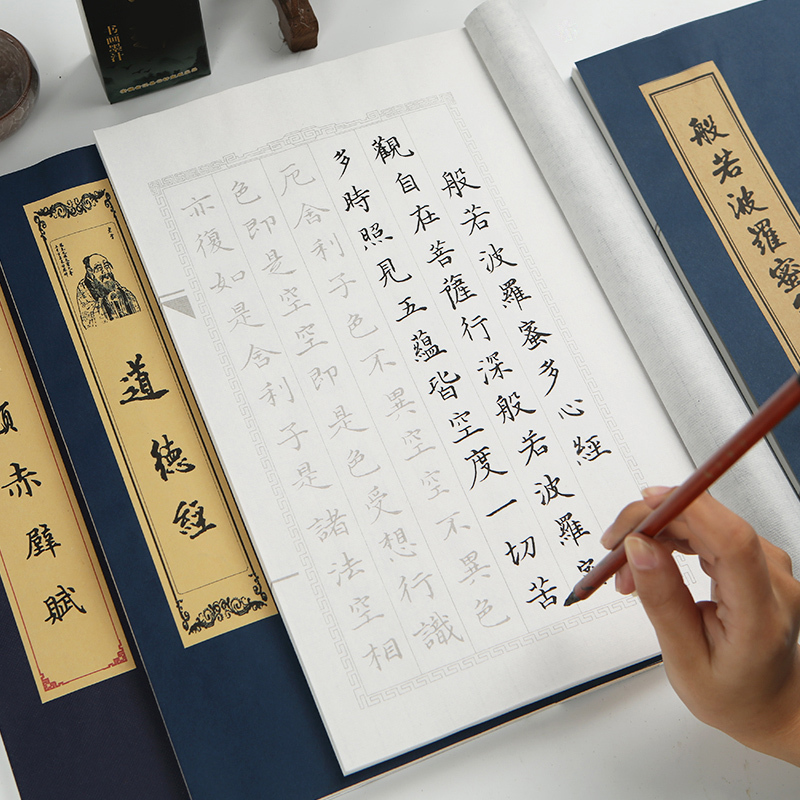 般若波羅蜜
般若波羅蜜多心經
觀自在菩薩行深般若波羅蜜
多時照見五蘊皆空度一切苦
厄舍利子色不異空空不異色
色即是空空即是色受想行識
亦復如是舍利子是諸法空相
书画墨汁
道德經
赤壁賦